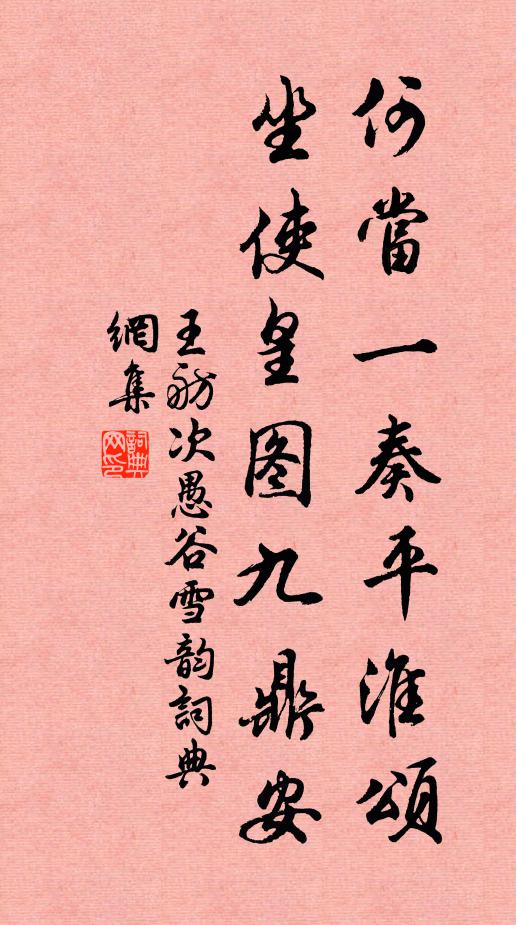 何當一奏平淮頌
坐使皇图九鼎安
王舫次愚谷雪韵詞典
網集
詞典
网印